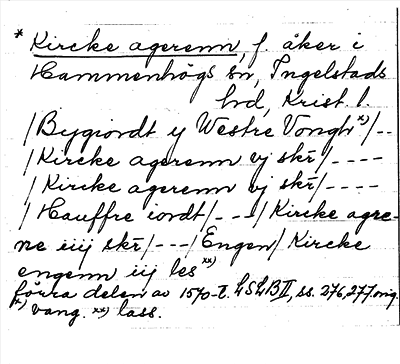 * Kircke agerenn, f. åker i
Hammenhögs sn, Ingelstads
hd, Krist. l.
/Bygiordt y Westre Vongh x)/--
/Kircke agerenn vj skr̄/----
/Kircke agerenn vj skr̄/----
/Hauffre iordt/---/Kircke agre-
ne iiij skr̄/---/Engen/Kircke
engenn iij les xx)
förra delen av 1570-t. LSLB II, ss. 276, 277. orig.
x) vang. xx) lass.